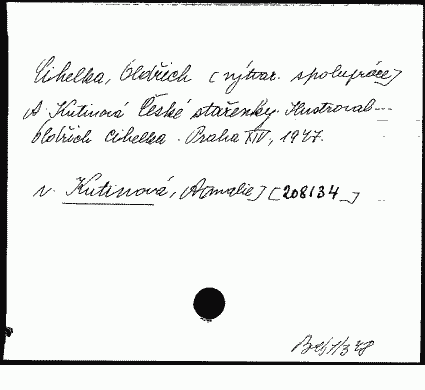 Cihelka, Oldřich [výtvar. spolupráce]
A. Kutinová České stařenky. Ilustroval
Oldřich Cihelka. Praha XIV, 1947.
v. Kutinová, Amalie] [208134]